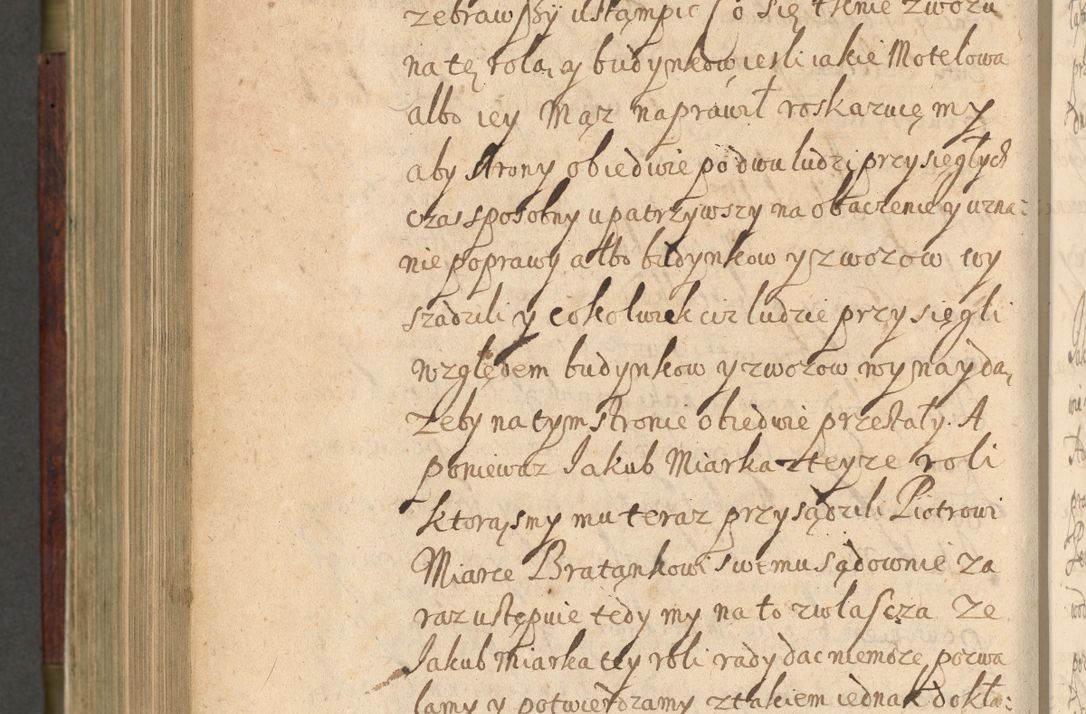 zebrawszy ustąmpic Co się tknie zwozu
na tę rolą, y budynków ięsli iakie Motelowa
albo iey Mąz naprawił roskazuięmy
aby strony obiedwie po dwu ludzi przysięgłych
czas sposobny upatrzywszy na obaczenie y uzna:
nie poprawy albo budynkow y zwozow wy
szadzili y cokolwiek ciz ludzie przysięgli
względem budynkow y zwozow wynaydą,
zeby na tym stronie obiedwie przestały. A
poniewaz Jakub Miarka z teyze roli
ktorąsmy mu teraz przysądzili Piotrowi
Miarce Bratąnkowi swemu sądownie za
raz ustępuie tedy my na to zwlascza ze
Jakub Miarka tey roli rady dac niemoze pozwa
lamy y potwierdzamy z takiem iednak dokła: